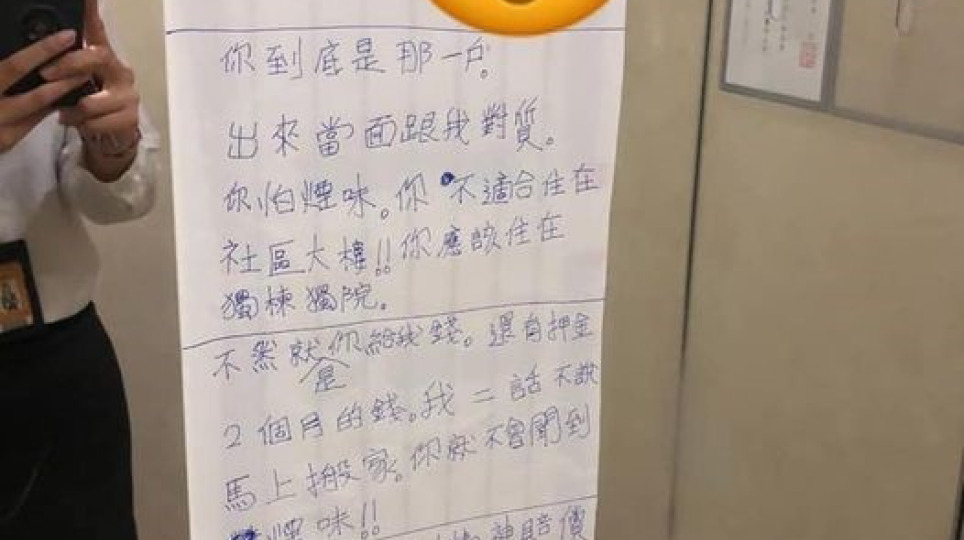 你到底是那一戶。
出來當面跟我對質。
你怕煙味。你不適合住在
社區大樓!!你應該住在
獨棟獨院。
不然就是你給我錢。還有押金
2個月的錢。我二話不說
馬上搬家。你就不會聞到
煙味!!
神賠價